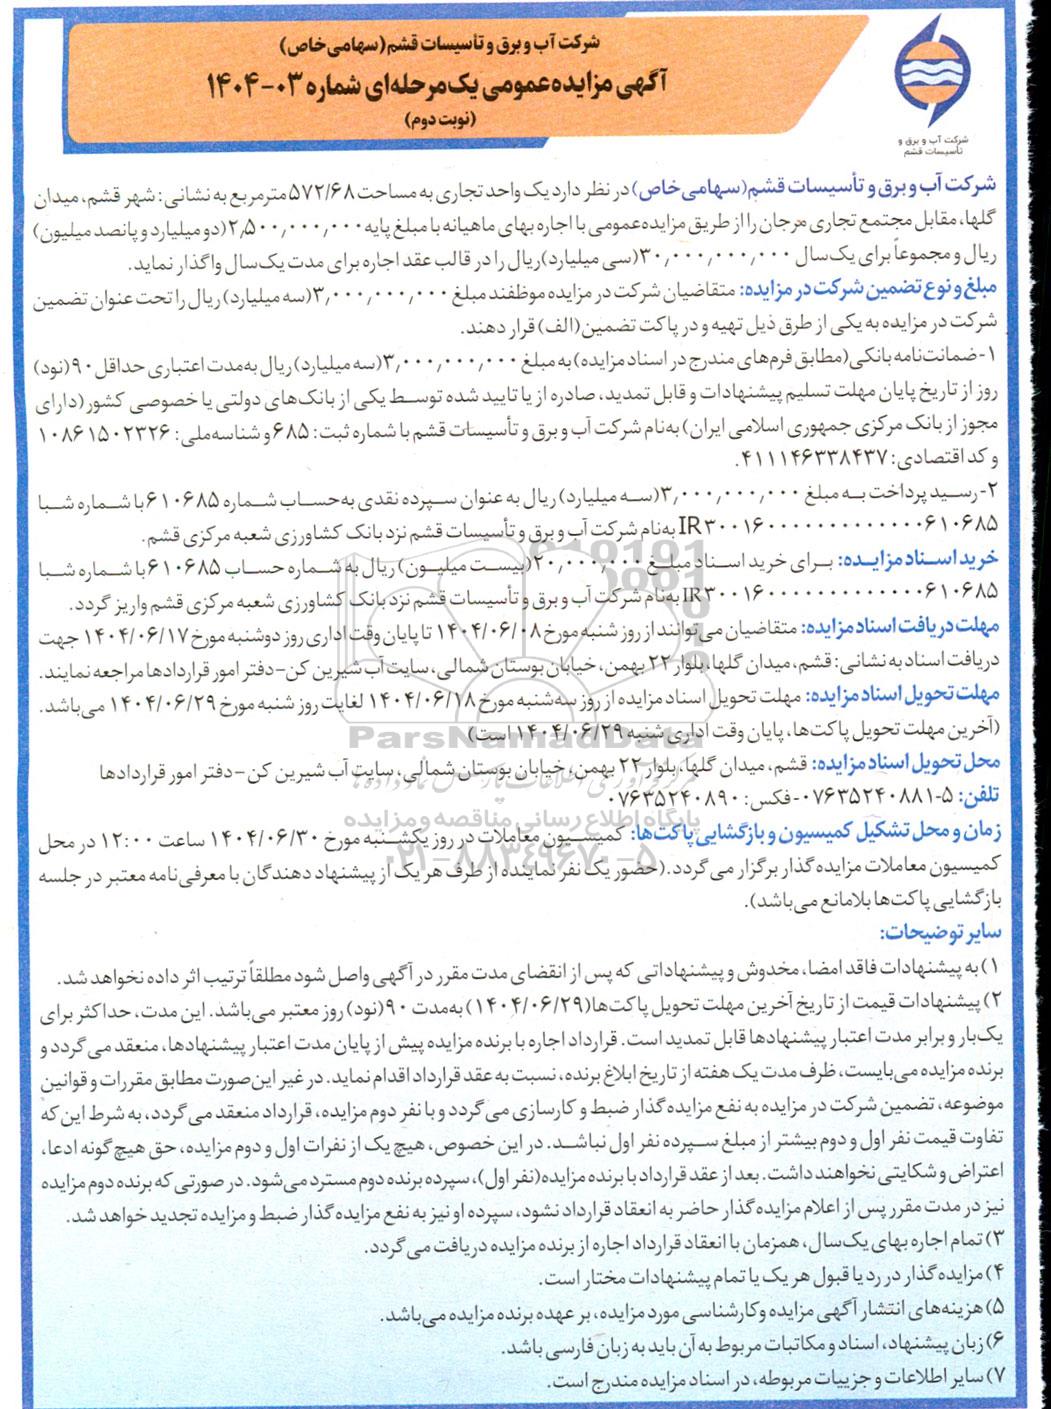 شرکت آب و برق و تأسیسات قشم(سهامی خاص)
آگهی مزایده عمومی یک مرحله‌ای شماره ۰۳-۱۴۰۴
(نوبت دوم)
شرکت آب و برق و
تأسیسات قشم
شرکت آب و برق و تأسیسات قشم(سهامی خاص) در نظر دارد یک واحد تجاری به مساحت ۵۷۲/۶۸مترمربع به نشانی: شهر قشم، میدان
گلها، مقابل مجتمع تجاری مرجان را از طریق مزایده‌عمومی با اجاره بهای ماهیانه با مبلغ پایه ۲٫۵۰۰٫۰۰۰٫۰۰۰(دو میلیارد و پانصد میلیون)
ریال و مجموعاً برای یک سال ۳۰٫۰۰۰٫۰۰۰٫۰۰۰(سی میلیارد)ریال را در قالب عقد اجاره برای مدت یک سال واگذار نماید.
مبلغ و نوع تضمین شرکت در مزایده: متقاضیان شرکت در مزایده موظفند مبلغ ۳٫۰۰۰٫۰۰۰٫۰۰۰(سه میلیارد) ریال را تحت عنوان تضمین
شرکت در مزایده به یکی از طرق ذیل تهیه و در پاکت تضمین(الف) قرار دهند.
۱- ضمانت‌نامه بانکی(مطابق فرم‌های مندرج در اسناد مزایده) به مبلغ ۳٫۰۰۰٫۰۰۰٫۰۰۰(سه میلیارد) ریال به‌مدت اعتباری حداقل ۹۰(نود)
روز از تاریخ پایان مهلت تسلیم پیشنهادات و قابل تمدید، صادره از یا تایید شده توسط یکی از بانک‌های دولتی یا خصوصی کشور(دارای
مجوز از بانک مرکزی جمهوری اسلامی ایران) به‌نام شرکت آب و برق و تأسیسات قشم با شماره ثبت: ۶۸۵ و شناسه‌ملی: ۱۰۸۶۱۵۰۲۳۲۶
و کد اقتصادی: ۴۱۱۱۴۶۳۳۸۴۳۷.
۲- رسید پرداخت به مبلغ ۳٫۰۰۰٫۰۰۰٫۰۰۰(سه میلیارد) ریال به عنوان سپرده نقدی به‌حساب شماره ۶۱۰۶۸۵ با شماره شبا
IR۳۰۰۱۶۰۰۰۰۰۰۰۰۰۰۰۰۰۰۶۱۰۶۸۵ به‌نام شرکت آب و برق و تأسیسات قشم نزد بانک کشاورزی شعبه مرکزی قشم.
خرید اسناد مزایده: برای خرید اسناد مبلغ ۲۰٫۰۰۰٫۰۰۰(بیست میلیون) ریال به شماره حساب ۶۱۰۶۸۵ با شماره شبا
IR۳۰۰۱۶۰۰۰۰۰۰۰۰۰۰۰۰۰۰۶۱۰۶۸۵ به‌نام شرکت آب و برق و تأسیسات قشم نزد بانک کشاورزی شعبه مرکزی قشم واریز گردد.
مهلت دریافت اسناد مزایده: متقاضیان می‌توانند از روز شنبه مورخ ۱۴۰۴/۰۶/۰۸ تا پایان وقت اداری روز دوشنبه مورخ ۱۴۰۴/۰۶/۱۷ جهت
دریافت اسناد به نشانی: قشم، میدان گلها، بلوار ۲۲ بهمن، خیابان بوستان شمالی، سایت آب شیرین کن-دفتر امور قراردادها مراجعه نمایند.
مهلت تحویل اسناد مزایده: مهلت تحویل اسناد مزایده از روز سه‌شنبه مورخ ۱۴۰۴/۰۶/۱۸ لغایت روز شنبه مورخ ۱۴۰۴/۰۶/۲۹ می‌باشد.
(آخرین مهلت تحویل پاکت‌ها، پایان وقت اداری شنبه ۱۴۰۴/۰۶/۲۹ است)
ParsNamadData
محل تحویل اسناد مزایده: قشم، میدان گلها، بلوار ۲۲ بهمن، خیابان بوستان شمالی، سایت آب شیرین کن-دفتر امور قراردادها
تلفن: ۵-۰۷۶۳۵۲۴۰۸۸۱-فکس: ۰۷۶۳۵۲۴۰۸۹۰
پایگاه اطلاع رسانی مناقصه و مزایده
زمان و محل تشکیل کمیسیون و بازگشایی پاکت‌ها: کمیسیون معاملات در روز یکشنبه مورخ ۱۴۰۴/۰۶/۳۰ ساعت ۱۲:۰۰ در محل
۰۲۱-۸۸۳۴۹۶۷۰-۵
کمیسیون معاملات مزایده گذار برگزار می گردد.(حضور یک نفر نماینده از طرف هر یک از پیشنهاد دهندگان با معرفی‌نامه معتبر در جلسه
بازگشایی پاکت‌ها بلامانع می‌باشد).
سایر توضیحات:
۱) به پیشنهادات فاقد امضا، مخدوش و پیشنهاداتی که پس از انقضای مدت مقرر در آگهی واصل شود مطلقاً ترتیب اثر داده نخواهد شد.
۲) پیشنهادات قیمت از تاریخ آخرین مهلت تحویل پاکت‌ها(۱۴۰۴/۰۶/۲۹) به‌مدت ۹۰(نود) روز معتبر می‌باشد. این مدت، حداکثر برای
یک‌بار و برابر مدت اعتبار پیشنهادها قابل تمدید است. قرارداد اجاره با برنده مزایده پیش از پایان مدت اعتبار پیشنهادها، منعقد می گردد و
برنده مزایده می‌بایست، ظرف مدت یک هفته از تاریخ ابلاغ برنده، نسبت به عقد قرارداد اقدام نماید. در غیر این‌صورت مطابق مقررات و قوانین
موضوعه، تضمین شرکت در مزایده به نفع مزایده گذار ضبط و کارسازی می گردد و با نفر دوم مزایده، قرارداد منعقد می گردد، به شرط این که
تفاوت قیمت نفر اول و دوم بیشتر از مبلغ سپرده نفر اول نباشد. در این خصوص، هیچ یک از نفرات اول و دوم مزایده، حق هیچ گونه ادعا،
اعتراض و شکایتی نخواهند داشت. بعد از عقد قرارداد با برنده مزایده(نفر اول)، سپرده برنده دوم مسترد می‌شود. در صورتی که برنده دوم مزایده
نیز در مدت مقرر پس از اعلام مزایده گذار حاضر به انعقاد قرارداد نشود، سپرده او نیز به نفع مزایده گذار ضبط و مزایده تجدید خواهد شد.
۳) تمام اجاره بهای یک‌سال، همزمان با انعقاد قرارداد اجاره از برنده مزایده دریافت می گردد.
۴) مزایده گذار در رد یا قبول هر یک یا تمام پیشنهادات مختار است.
۵) هزینه‌های انتشار آگهی مزایده و کارشناسی مورد مزایده، بر عهده برنده مزایده می‌باشد.
۶) زبان پیشنهاد، اسناد و مکاتبات مربوط به آن باید به زبان فارسی باشد.
۷) سایر اطلاعات و جزییات مربوطه، در اسناد مزایده مندرج است.